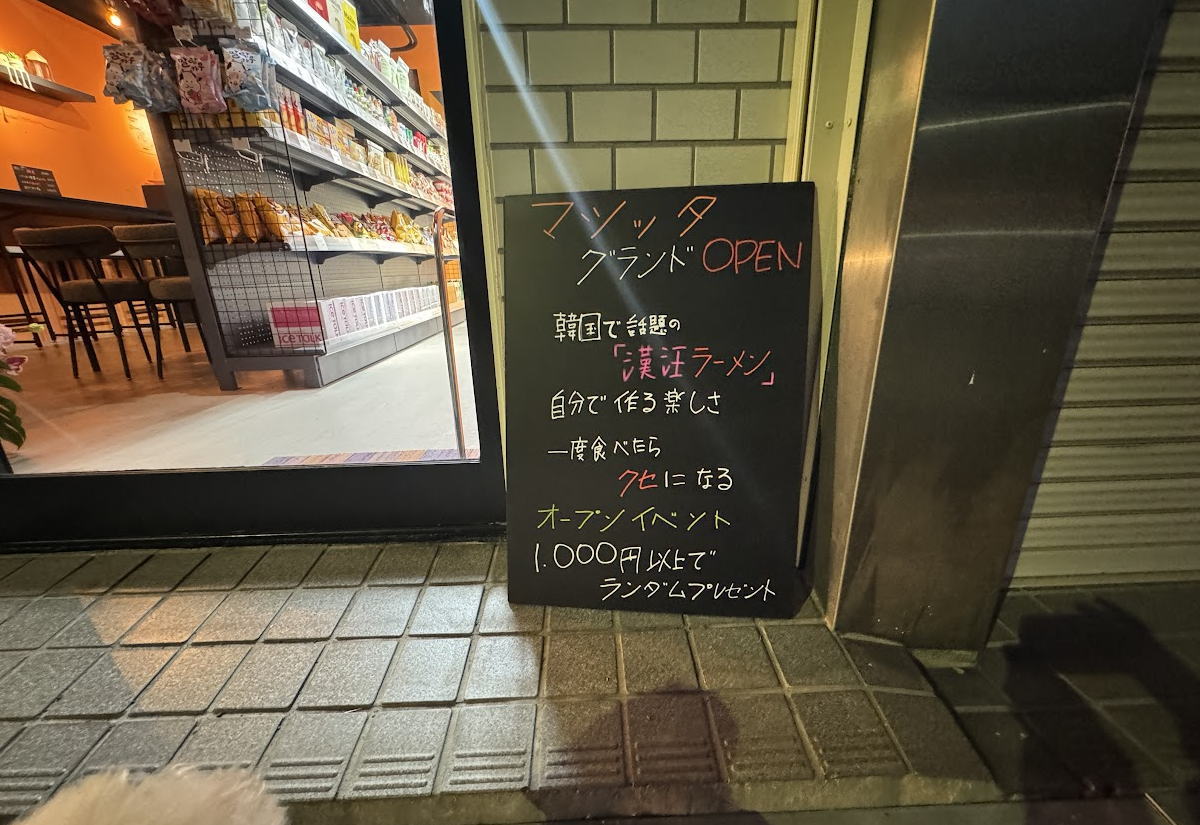 マシッタ
グランドOPEN
韓国で話題の
「漢江ラーメン」
自分で作る楽しさ
一度食べたら
クセになる
オープンイベント
1.000円以上で
ランダムプレゼント
ICE TALK